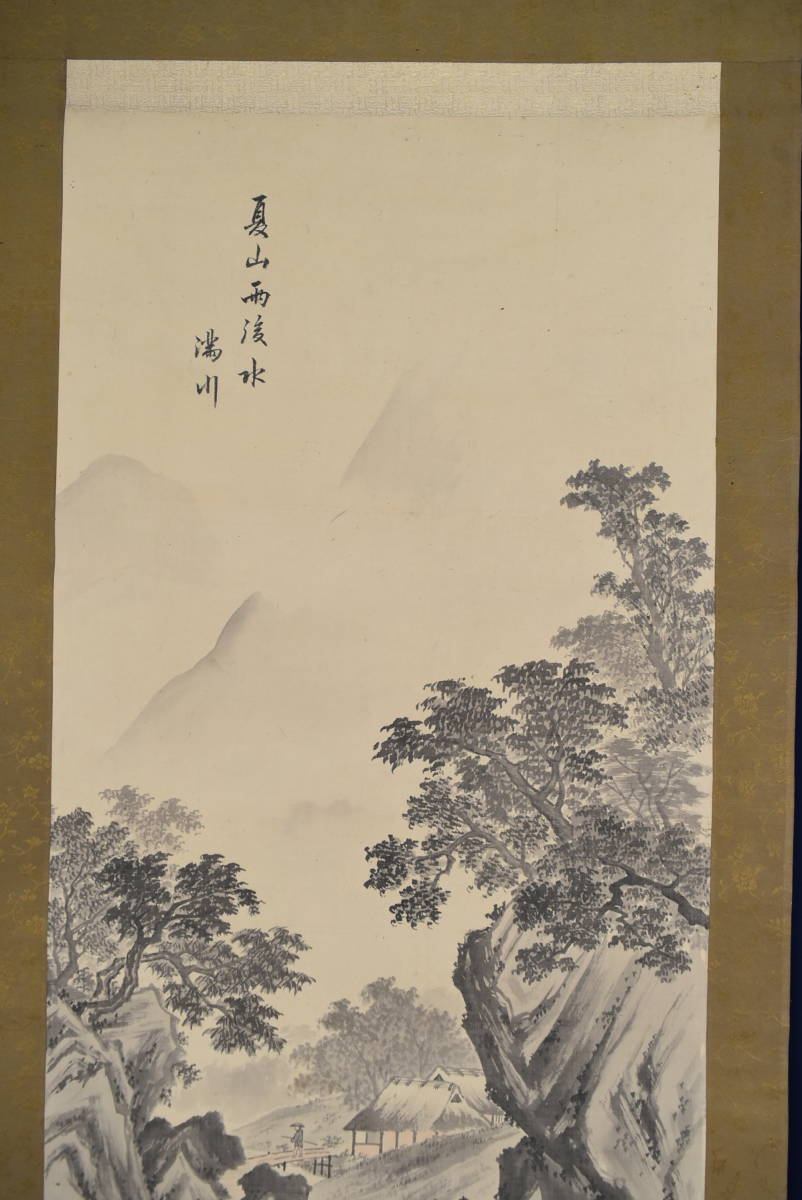 夏山雨後水
濤川